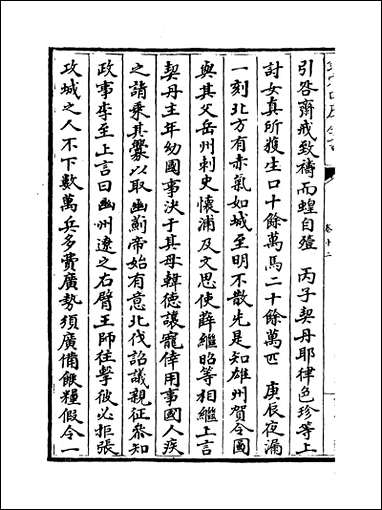 引咎齋戒致禱而蝗自殪　丙子契丹耶律色珍等上
討女真所獲生口十餘萬馬二十餘萬匹　庚辰夜漏
一刻北方有赤氣如城至明不散先是知雄州賀令圖
與其父岳州刺史懷浦及文思使薛繼昭等相繼上言
契丹主年幼國事決于其母韓德讓寵倖用事國人疾
之請乘其釁以取幽薊帝始有意北伐詔議親征參知
政事李至上言曰幽州遼之右臂王師往擊彼必拒張
攻城之人不下數萬兵多費廣勢須廣備餱糧假令一
卷十二